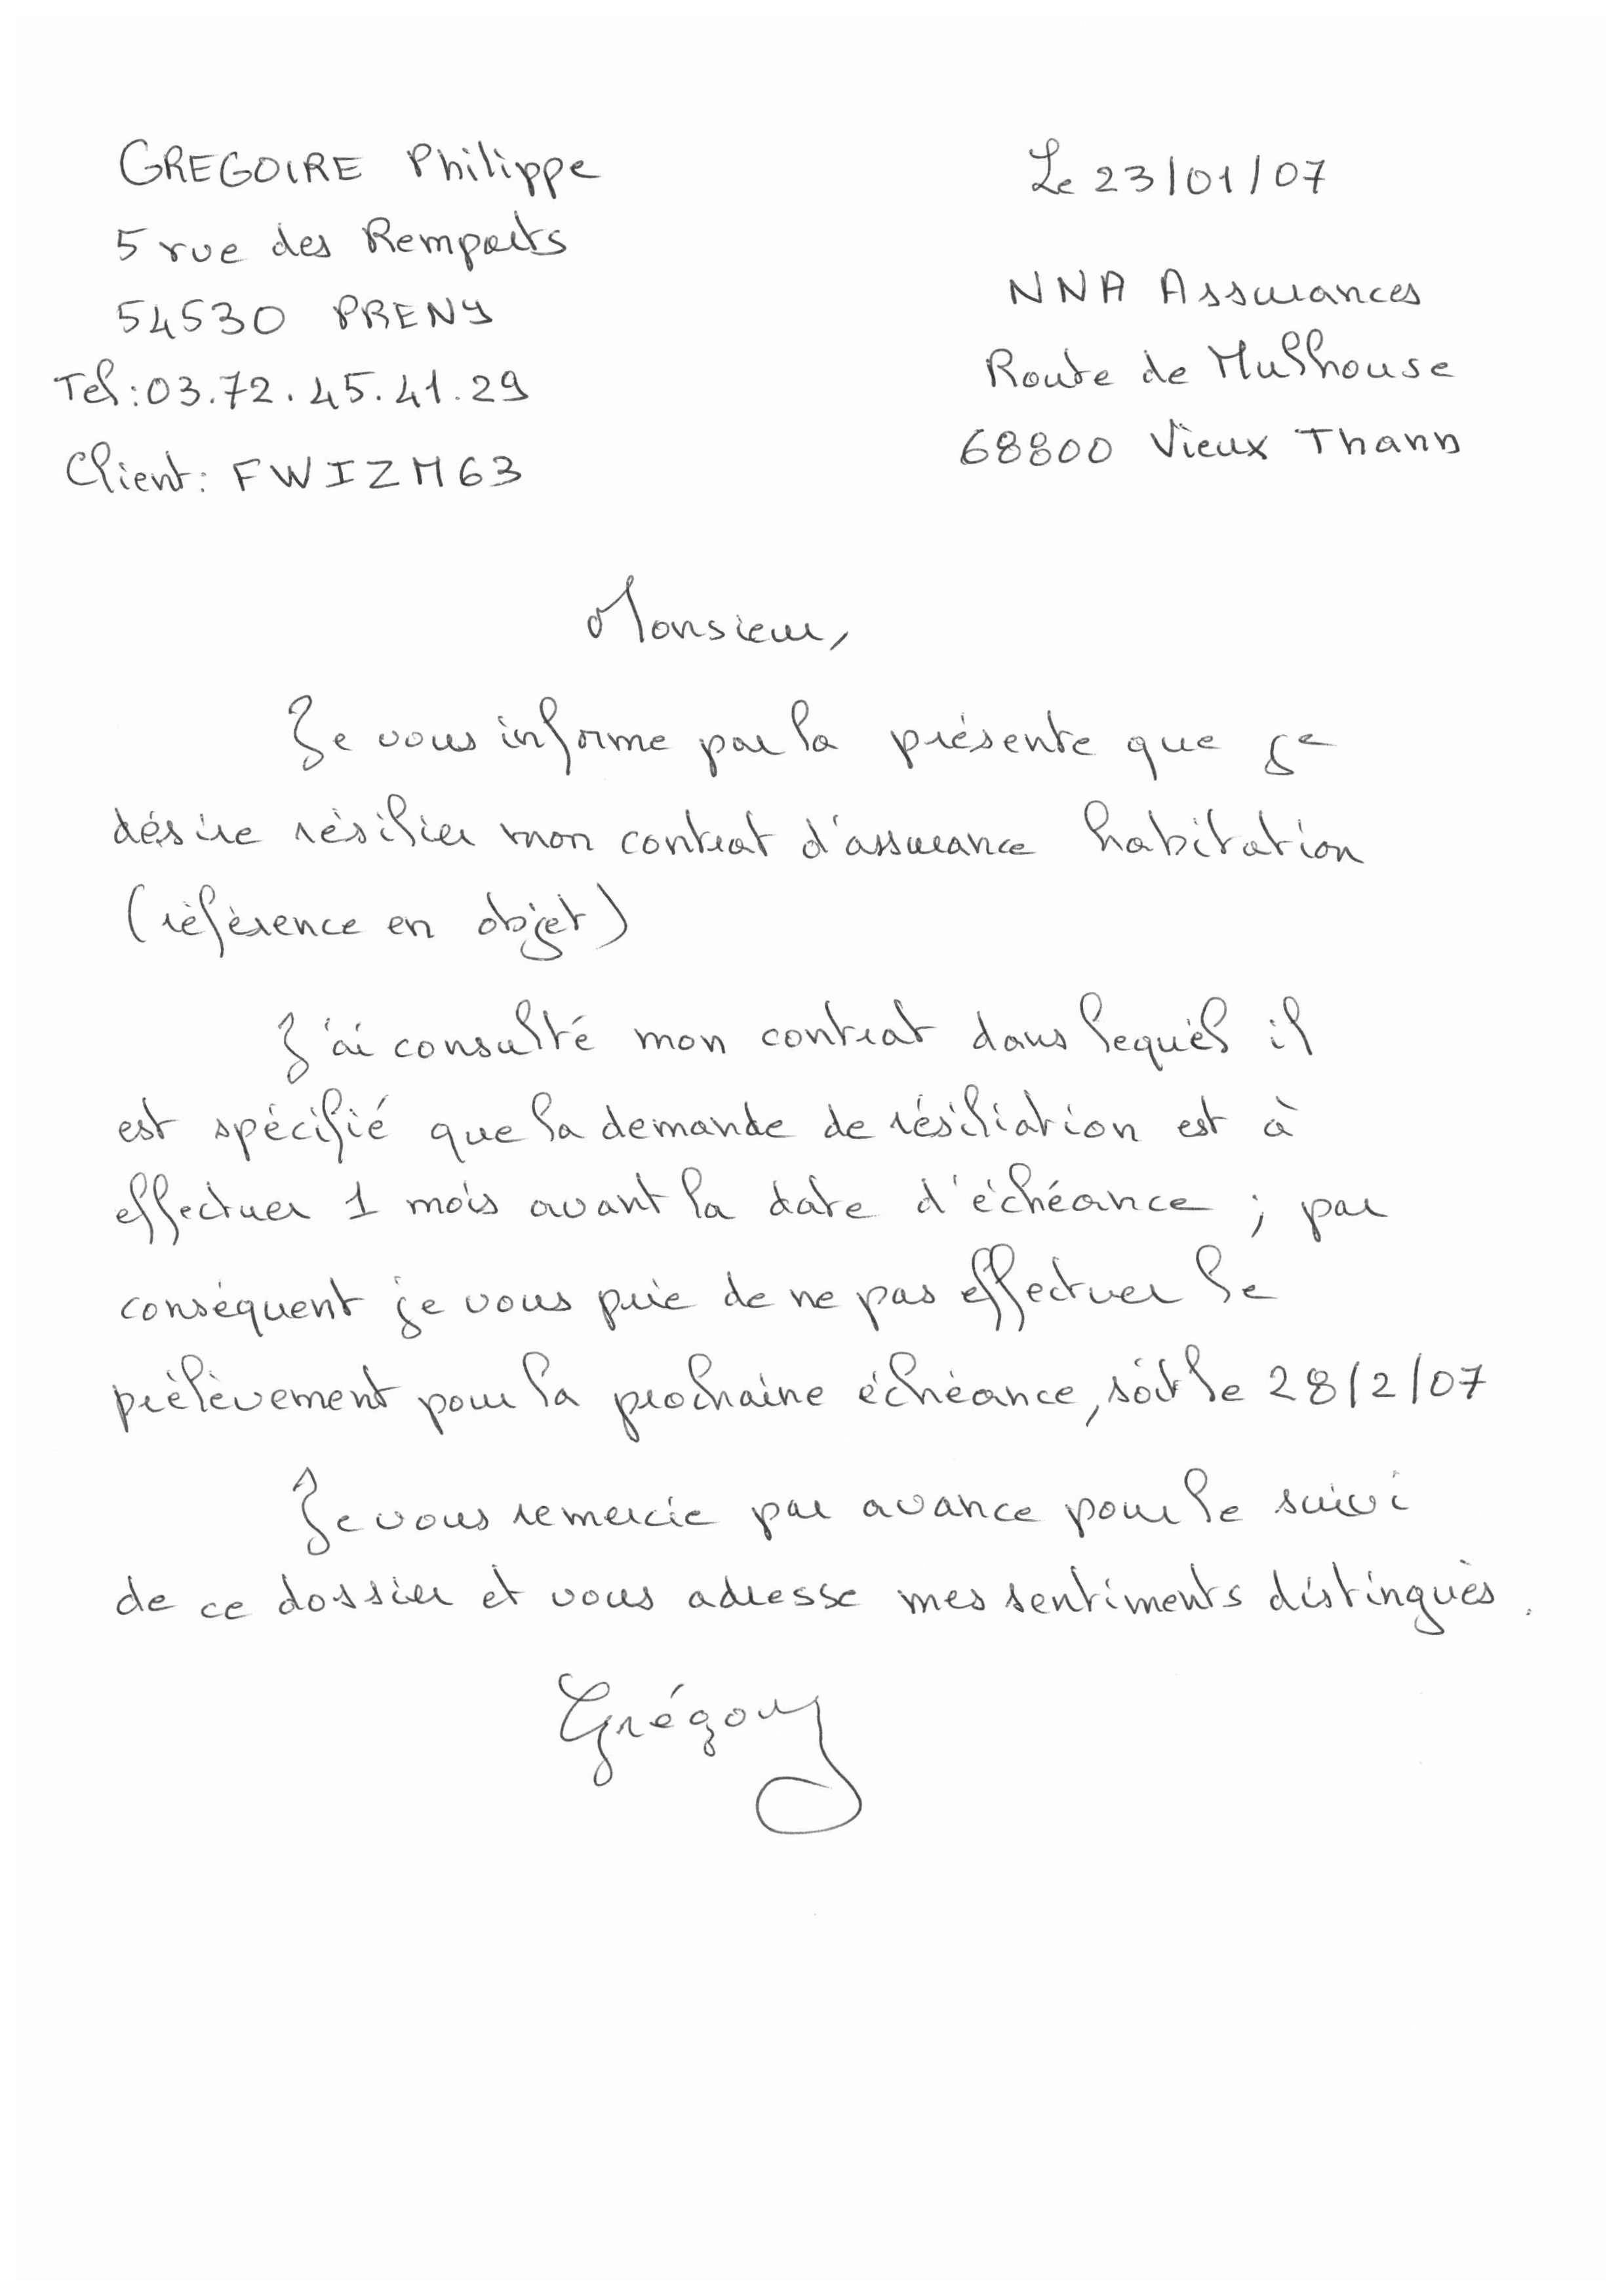 GREGOIRE Philippe
5 rue des Remparts
54530 PRENY
Tel : 03.72.45.41.29
Client : FWIZM63
Le 23/01/07
NNA Assurances
Route de Mulhouse
68800 Vieux Thann
Monsieur,
Je vous informe par la présente que je
désire résilier mon contrat d'assurance habitation
(référence en objet)
J'ai consulté mon contrat dans lequel il
est spécifié que la demande de résiliation est à
effectuer 1 mois avant la date d'échéance ; par
conséquent je vous prie de ne pas effectuer le
prélèvement pour la prochaine échéance, soit le 28/2/07
Je vous remercie par avance pour le suivi
de ce dossier et vous adresse mes sentiments distingués.
Grégory